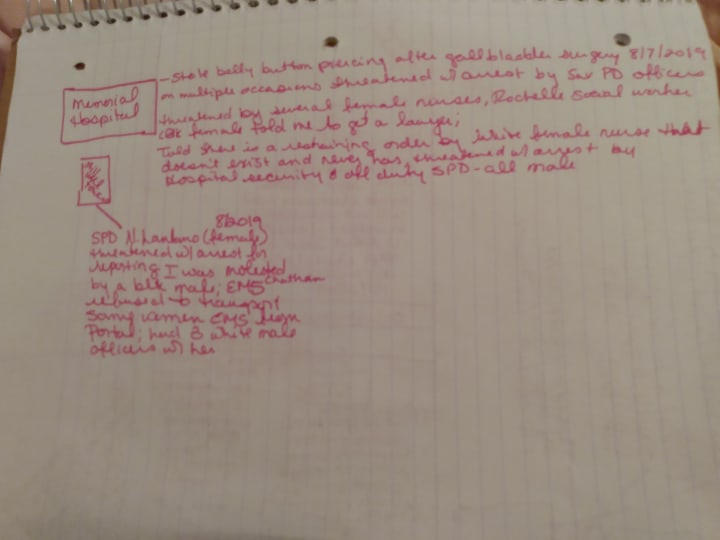 - Stole belly button piercing after gallbladder surgery 8/7/2019
on multiple occasions threatened w/ arrest by Sav PD officers
Memorial
Hospital
threatened by several female nurses, Rochelle social worker
female told me to get a lawyer;
Told there is a restraining order by white female nurse that
doesn't exist and never has, threatened w/ arrest by
Hospital security & off duty SPD - all male
8/2019
SPD N. (female)
threatened w/ arrest for
reporting I was molested
by a blk male; EMS Chatham
refused to transport
same women EMS from
Portal; had 3 white male
officers w/ her